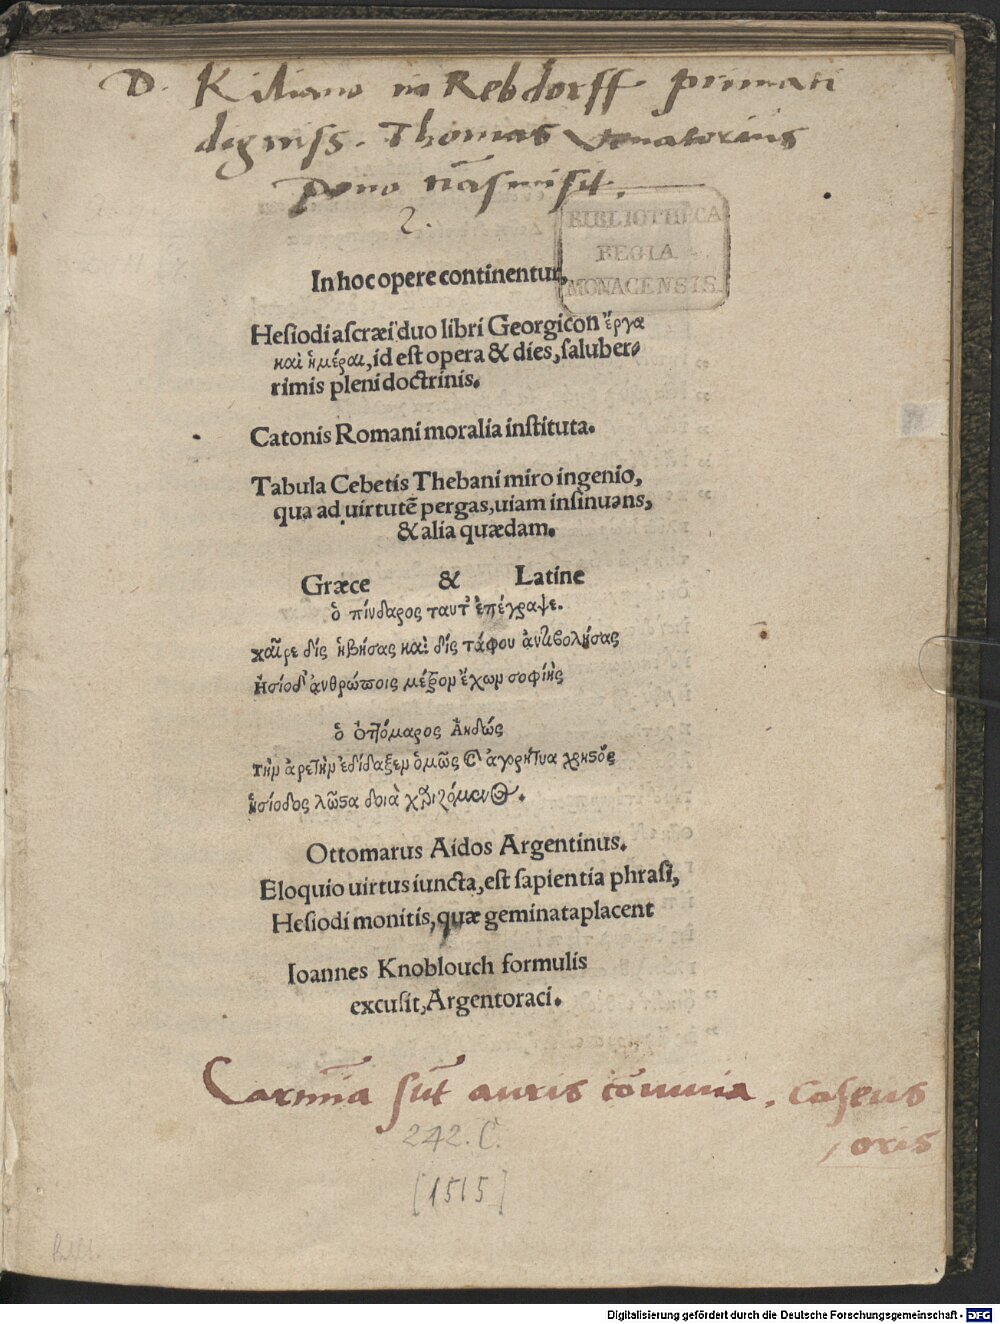 D. Kiliano in Rebdorff primari
digniss. Thomas Venatorius
dono trãsmisit.
2.
BIBLIOTHECA
REGIA
MONACENSIS
In hoc opere continentur,
Hesiodi ascræi duo libri Georgicon ἔργα
καὶ ἡμέραι, id est opera & dies, saluber-
rimis pleni doctrinis.
Catonis Romani moralia instituta.
Tabula Cebetis Thebani miro ingenio,
qua ad uirtutẽ pergas, uiam insinuans,
& alia quædam.
Græce & Latine
ὁ πίνδαρος ταυτ' ἐπέγραψε.
χαῖρε δὶς ἡβήσας καὶ δὶς τάφου ἀντιβολήσας
Ἡσίοδ' ἀνθρώποις μέτρον ἔχων σοφίης
ὁ ὀττόμαρος Ἀηδώς
τὴν ἀρετὴν ἐδίδαξεν ὁμῶς
ἡσίοδος λῶστα
Ottomarus Aidos Argentinus.
Eloquio uirtus iuncta, est sapientia phrasi,
Hesiodi monitis, quæ geminata placent
Ioannes Knoblouch formulis
excusit, Argentoraci.
Carmĩa sũt auris cõuiuia, caseus
oris
242. C.
[1515]
Digitalisierung gefördert durch die Deutsche Forschungsgemeinschaft - DFG